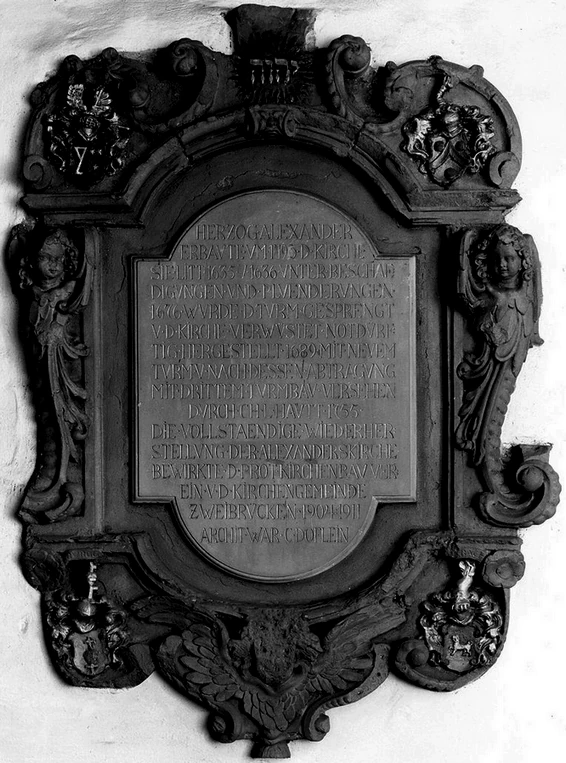 HERZOG·ALEXANDER
ERBAVTE·VM·1493·D·KIRCHE·
SIE·LITT·1635/1636·VNTER·BESCHAE
DIGVNGEN·VND·PLVENDERVNGEN·
1676·WVRDE·D·TVRM·GESPRENGT
V·D·KIRCHE·VERWVSTET·NOTDVRF
TIG·HERGESTELLT·1689·MIT·NEVEM
TVRM·V·NACH·DESSEN·ABTRAGVNG
MIT·DRITTEM·TVRMBAV·VERSEHEN
DVRCH·CHL·HAVTT·1755·
DIE·VOLLSTAENDIGE·WIEDERHER
STELLVNG·DER·ALEXANDERSKIRCHE
BEWIRKTE·D·PROT·KIRCHENBAV·VER
EIN·V·D·KIRCHENGEMEINDE
ZWEIBRVCKEN·1904-1911
ARCHIT·WAR·C·DOFLEIN